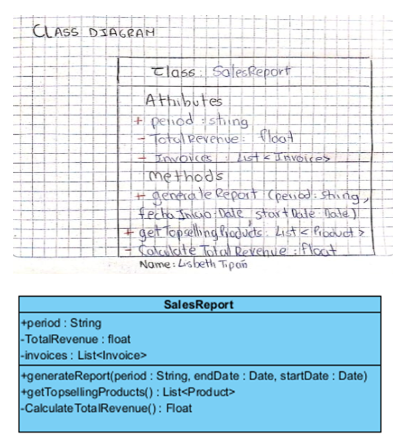 CLASS DIAGRAM
Class: SalesReport
Attributes
+ period : string
- TotalRevenue : float
- Invoices : List <Invoices>
Methods
+ generateReport (period: string,
fecha Inicio: Date, startDate: Date)
+ getTopsellingProducts: List <Product>
- Calculate Total Revenue : float
Name: Lisbeth Tipán
SalesReport
+period : String
-TotalRevenue : float
-invoices : List<Invoice>
+generateReport(period : String, endDate : Date, startDate : Date)
+getTopsellingProducts() : List<Product>
-CalculateTotalRevenue() : Float